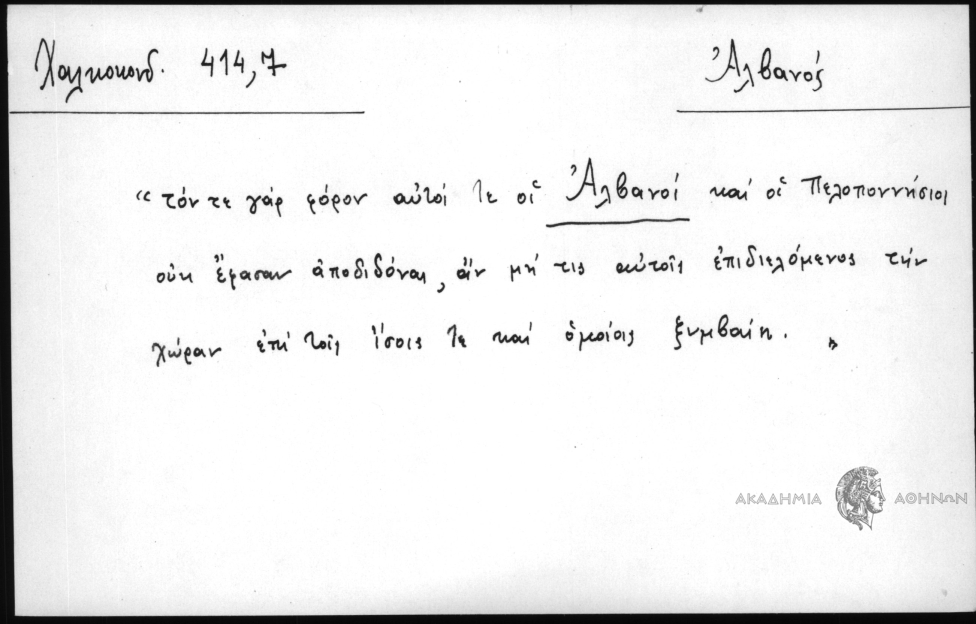 Χαλκοκονδ. 414,7
Ἀλβανός
"τόν τε γάρ φόρον αὐτοί τε οἱ Ἀλβανοί καί οἱ Πελοποννήσιοι
οὐκ ἔφασαν ἀποδιδόναι, ἄν μή τις αὐτοῖς ἐπιδιελόμενος τήν
χώραν ἐπί τοῖς ἴσοις τε καί ὁμοίοις ξυμβαίη. "
ΑΚΑΔΗΜΙΑ ΑΘΗΝΩΝ